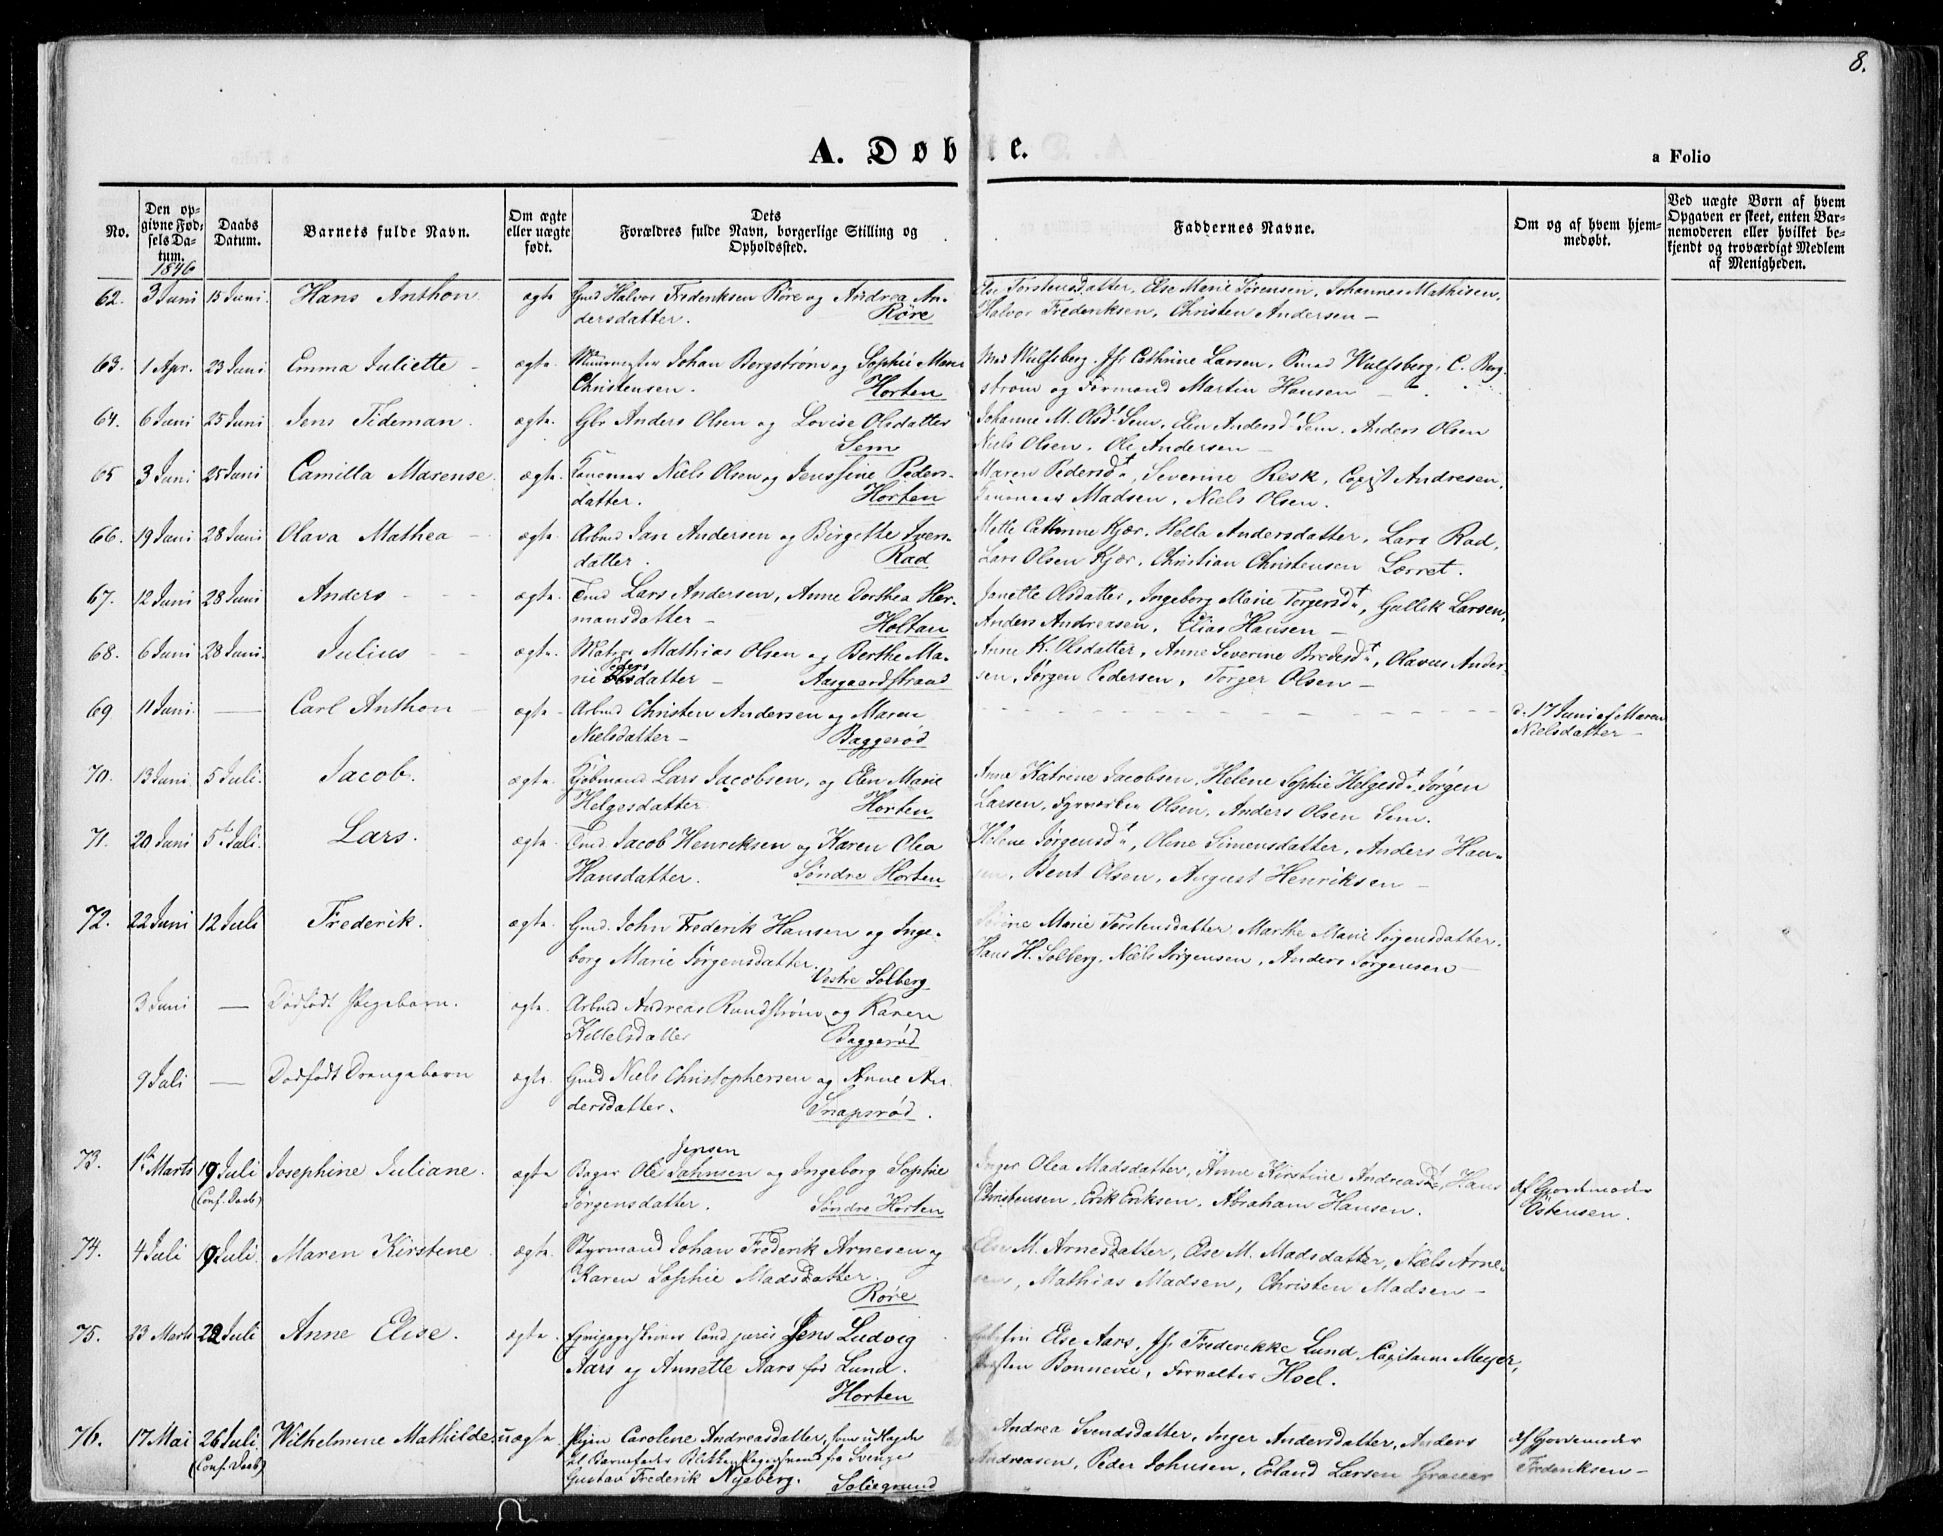 8.
A. Døbte.
a Folio
No.
Den op-
givne Fød-
sels Da-
tum.
Daabs
Datum.
Barnets fulde Navn.
Om ægte
eller uægte
født.
Dets
Forældres fulde Navn, borgerlige Stilling og
Opholdssted.
Faddernes Navne.
Om og af hvem hjem-
medøbt.
Ved uægte Børn af hvem
Opgaven er skeet, enten Bar-
nemoderen eller hvilket be-
kjendt og troværdigt Medlem
af Menigheden.
1846
62. 3 Juni 15 Juni. Hans Anthon ægte Gmd Halvor Frederiksen Røre og Andrea An- Else Torstensdatter, Else Marie Sørensen, Johannes Mathisen,
dersdatter. Røre Halvor Frederiksen, Christen Andersen —
63. 1 Apr. 23 Juni Emma Juliette — ægte Muurmester Johan Bergstrøm og Sophie Marie Mad Wulfsberg, Jfr Cathrine Larsen, Wulfsberg, C. Berg-
Christensen. Horten strøm og Formand Martin Hansen —
64. 6 Juni 25 Juni Jens Tideman. ægte. Gbr Anders Olsen og Lovise Olsdatter Johanne M. Olsd Sem, Elen Andersd Sem, Anders Olsen
Sem Niels Olsen, Ole Andersen —
65 3 Juni 25 Juni Camilla Marense. ægte. Niels Olsen og Jenssine Peders- Maren Pedersdt, Severine Resk, Andresen,
datter. Horten Madsen, Niels Olsen.
66. 19 Juni 28 Juni Olava Mathea — ægte. Arbmd Jan Andersen og Birgitte Iver- Mette Cathrine Kjær, Hella Andersdatter, Lars Rad,
datter. Rad Lars Olsen Kjær, Christian Christensen Lerret.
67. 12 Juni 28 Juni Anders - - - ægte. Tmd Lars Andersen, Anne Dorthea Her- Janette Olsdatter, Ingeborg Marie Torgersdt, Gullik Larsen,
mansdatter — Holtan Anders Andreasen, Elias Hansen —
68. 6 Juni 28 Juni. Julius - - ægte. Matros Mathias Olsen og Berthe Ma- Anne K. Olsdatter, Anne Severine Bredesdt, Olavus Ander-
Peders
rie datter — Aasgaardstrand sen, Jørgen Pedersen, Torger Olsen —
69 11 Juni — Carl Anthon — ægte. Arbmd Christen Andersen og Maren - - - - - - - - - d. 17 Juni af Maren
Nielsdatter — Baggerød Nielsdatter —
70. 13 Juni 5 Juli. Jacob. ægte. Kjøbmand Lars Jacobsen, og Elen Marie Anne Katrine Jacobsen, Helene Sophie Helgesdt, Jørgen
Helgesdatter Horten Larsen, Olsen, Anders Olsen Sem.
71. 20 Juni 5te Juli. Lars. ægte. Tmd Jacob Henriksen og Karen Olea Helene Jørgensdt, Olene Simensdatter, Anders Han-
Hansdatter. Søndre Horten sen, Bent Olsen, August Henriksen —
72. 22 Juni 12 Juli Frederik. ægte. Gmd. John Frederik Hansen og Inge- Marie Torstensdatter, Marthe Marie Jørgensdatter,
borg Marie Jørgensdatter. Vestre Solberg Hans H. Solberg, Niels Jørgensen, Anders Jørgensen —
3 Juni — Dødfødt Pigebarn. ægte. Arbmd Andreas Rundstrøm og Karen
Kittelsdatter Baggerød
9 Juli — Dødfødt Drengebarn ægte. Gmd Niels Christophersen og Anne An-
dersdatter. Snapsrød.
Jensen
73. 1te Marts 19 Juli Josephine Juliane. ægte Bager Ole Jahnsen og Ingeborg Sophie Inger Olea Madsdatter, Anne Kirstine Andreasdt, Hans af Gjordemoder
(Conf. Daab) Jørgensdatter. Søndre Horten Christensen, Erik Eriksen, Abraham Hansen. Østensen.
74. 4 Juli 19 Juli. Maren Kirstine ægte. Styrmand Johan Frederik Arnesen og Else M. Arnesdatter, Else M. Madsdatter, Niels Arne-
Karen Sophie Madsdatter. sen, Mathias Madsen, Christen Madsen —
Røre
75. 23 Marts 22 Juli Anne Elise. ægte. Eqvipageskriver Cand juris Jens Ludvig Else Aars, Jfr Frederikke Lund, Capitaine Meyer,
Aars og Annette Aars fød Lund. Bonnevie, Forvalter Hoel.
Horten
76. 17 Mai 26 Juli Wilhelmine Mathilde. uægte Pigen Caroline Andreasdatter, som udlagde Andrea Svendsdatter, Inger Andersdatter, Anders af Gjordemoder
(Conf. Daab) til Barnefader fra Sverige Andreasen, Peder Johnsen, Erland Larsen Frederiksen —
Gustav Frederik Nyeberg. Soliegrund